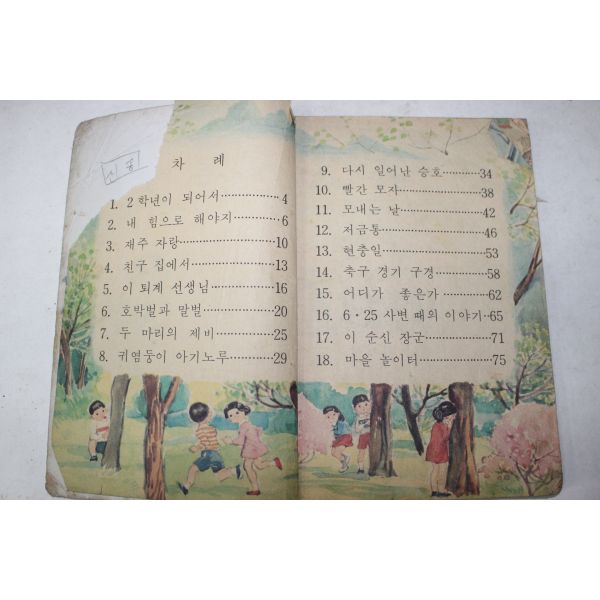 차 례
1. 2학년이 되어서 4
2. 내 힘으로 해야지 6
3. 재주 자랑 10
4. 친구 집에서 13
5. 이 퇴계 선생님 16
6. 호박벌과 말벌 20
7. 두 마리의 제비 25
8. 귀염둥이 아기노루 29
9. 다시 일어난 승호 34
10. 빨간 모자 38
11. 모내는 날 42
12. 저금통 46
13. 현충일 53
14. 축구 경기 구경 58
15. 어디가 좋은가 62
16. 6·25 사변 때의 이야기 65
17. 이 순신 장군 71
18. 마을 놀이터 75